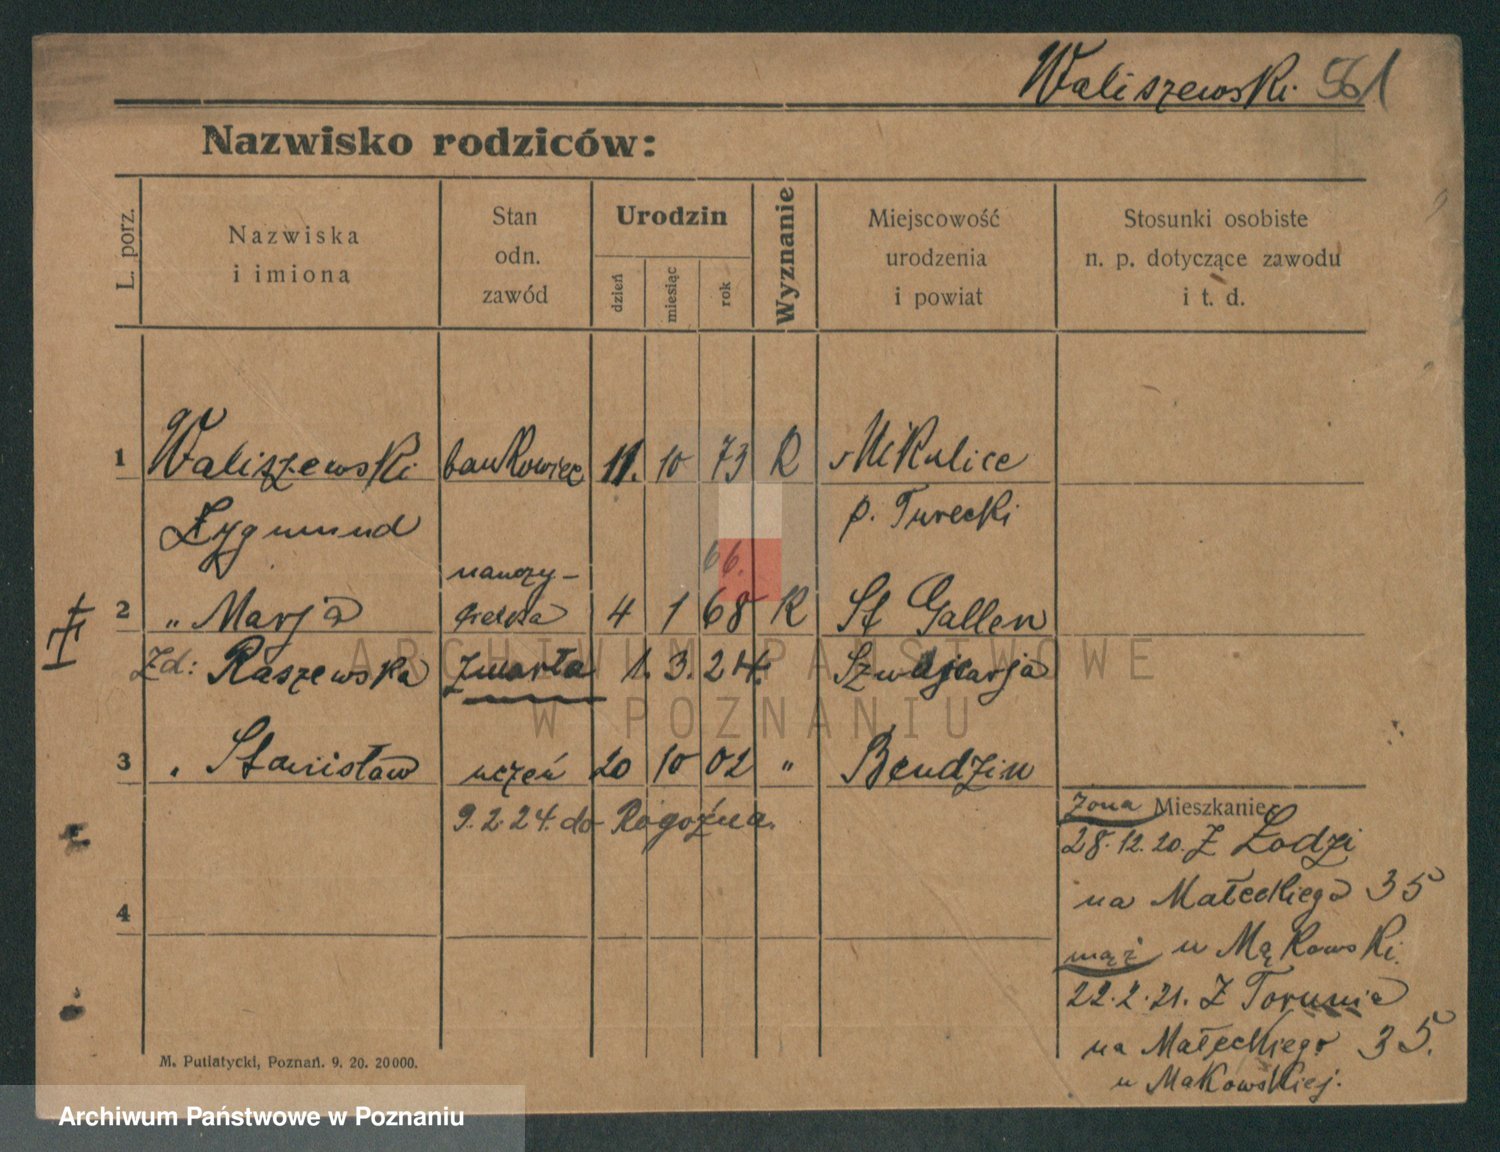 Waliszewski. 561
Nazwisko rodziców:
L. porz.
Nazwiska
i imiona
Stan
odn.
zawód
Urodzin
dzień
miesiąc
rok
Wyznanie
Miejscowość
urodzenia
i powiat
Stosunki osobiste
n. p. dotyczące zawodu
i t. d.
1 Waliszewski bankowiec 11. 10 73 K Mikulice
Zygmund p. Turecki
nauczy- 66.
2 " Marja cielka 4 1 68 K St Gallen
Zd: Raszewska zmarła 1. 3. 24. Szwajcarja
3 " Stanisław uczeń 20 10 02 " Bendzin
9. 2. 24. do Rogoźna.
4
żona Mieszkanie
28. 12. 20. Z Łodzi
na Małeckiego 35
mąż u Mąkowski.
22. 2. 21. Z Torunia
na Małeckiego 35.
u Makowskiej.
M. Putiatycki, Poznań. 9. 20. 20000.
ARCHIWUM PAŃSTWOWE
W POZNANIU
Archiwum Państwowe w Poznaniu